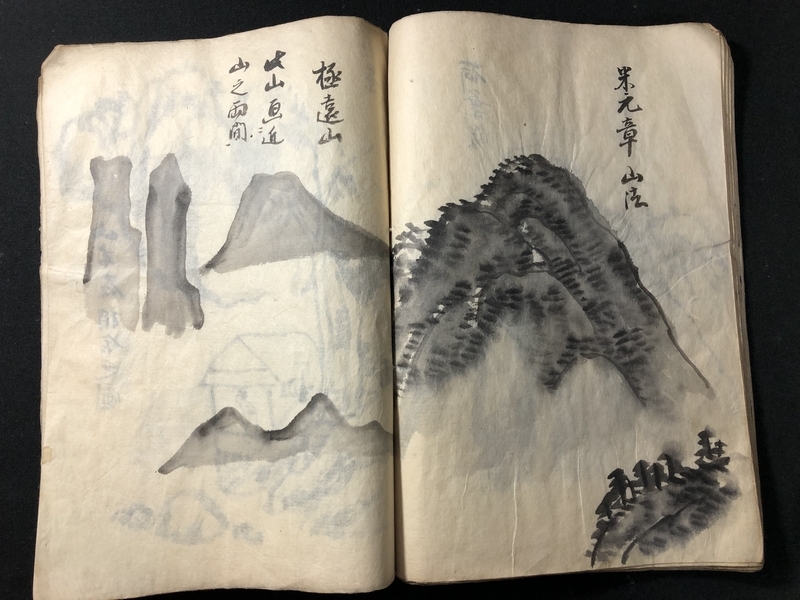 米元章山法
極遠山
此山画近
山之両間